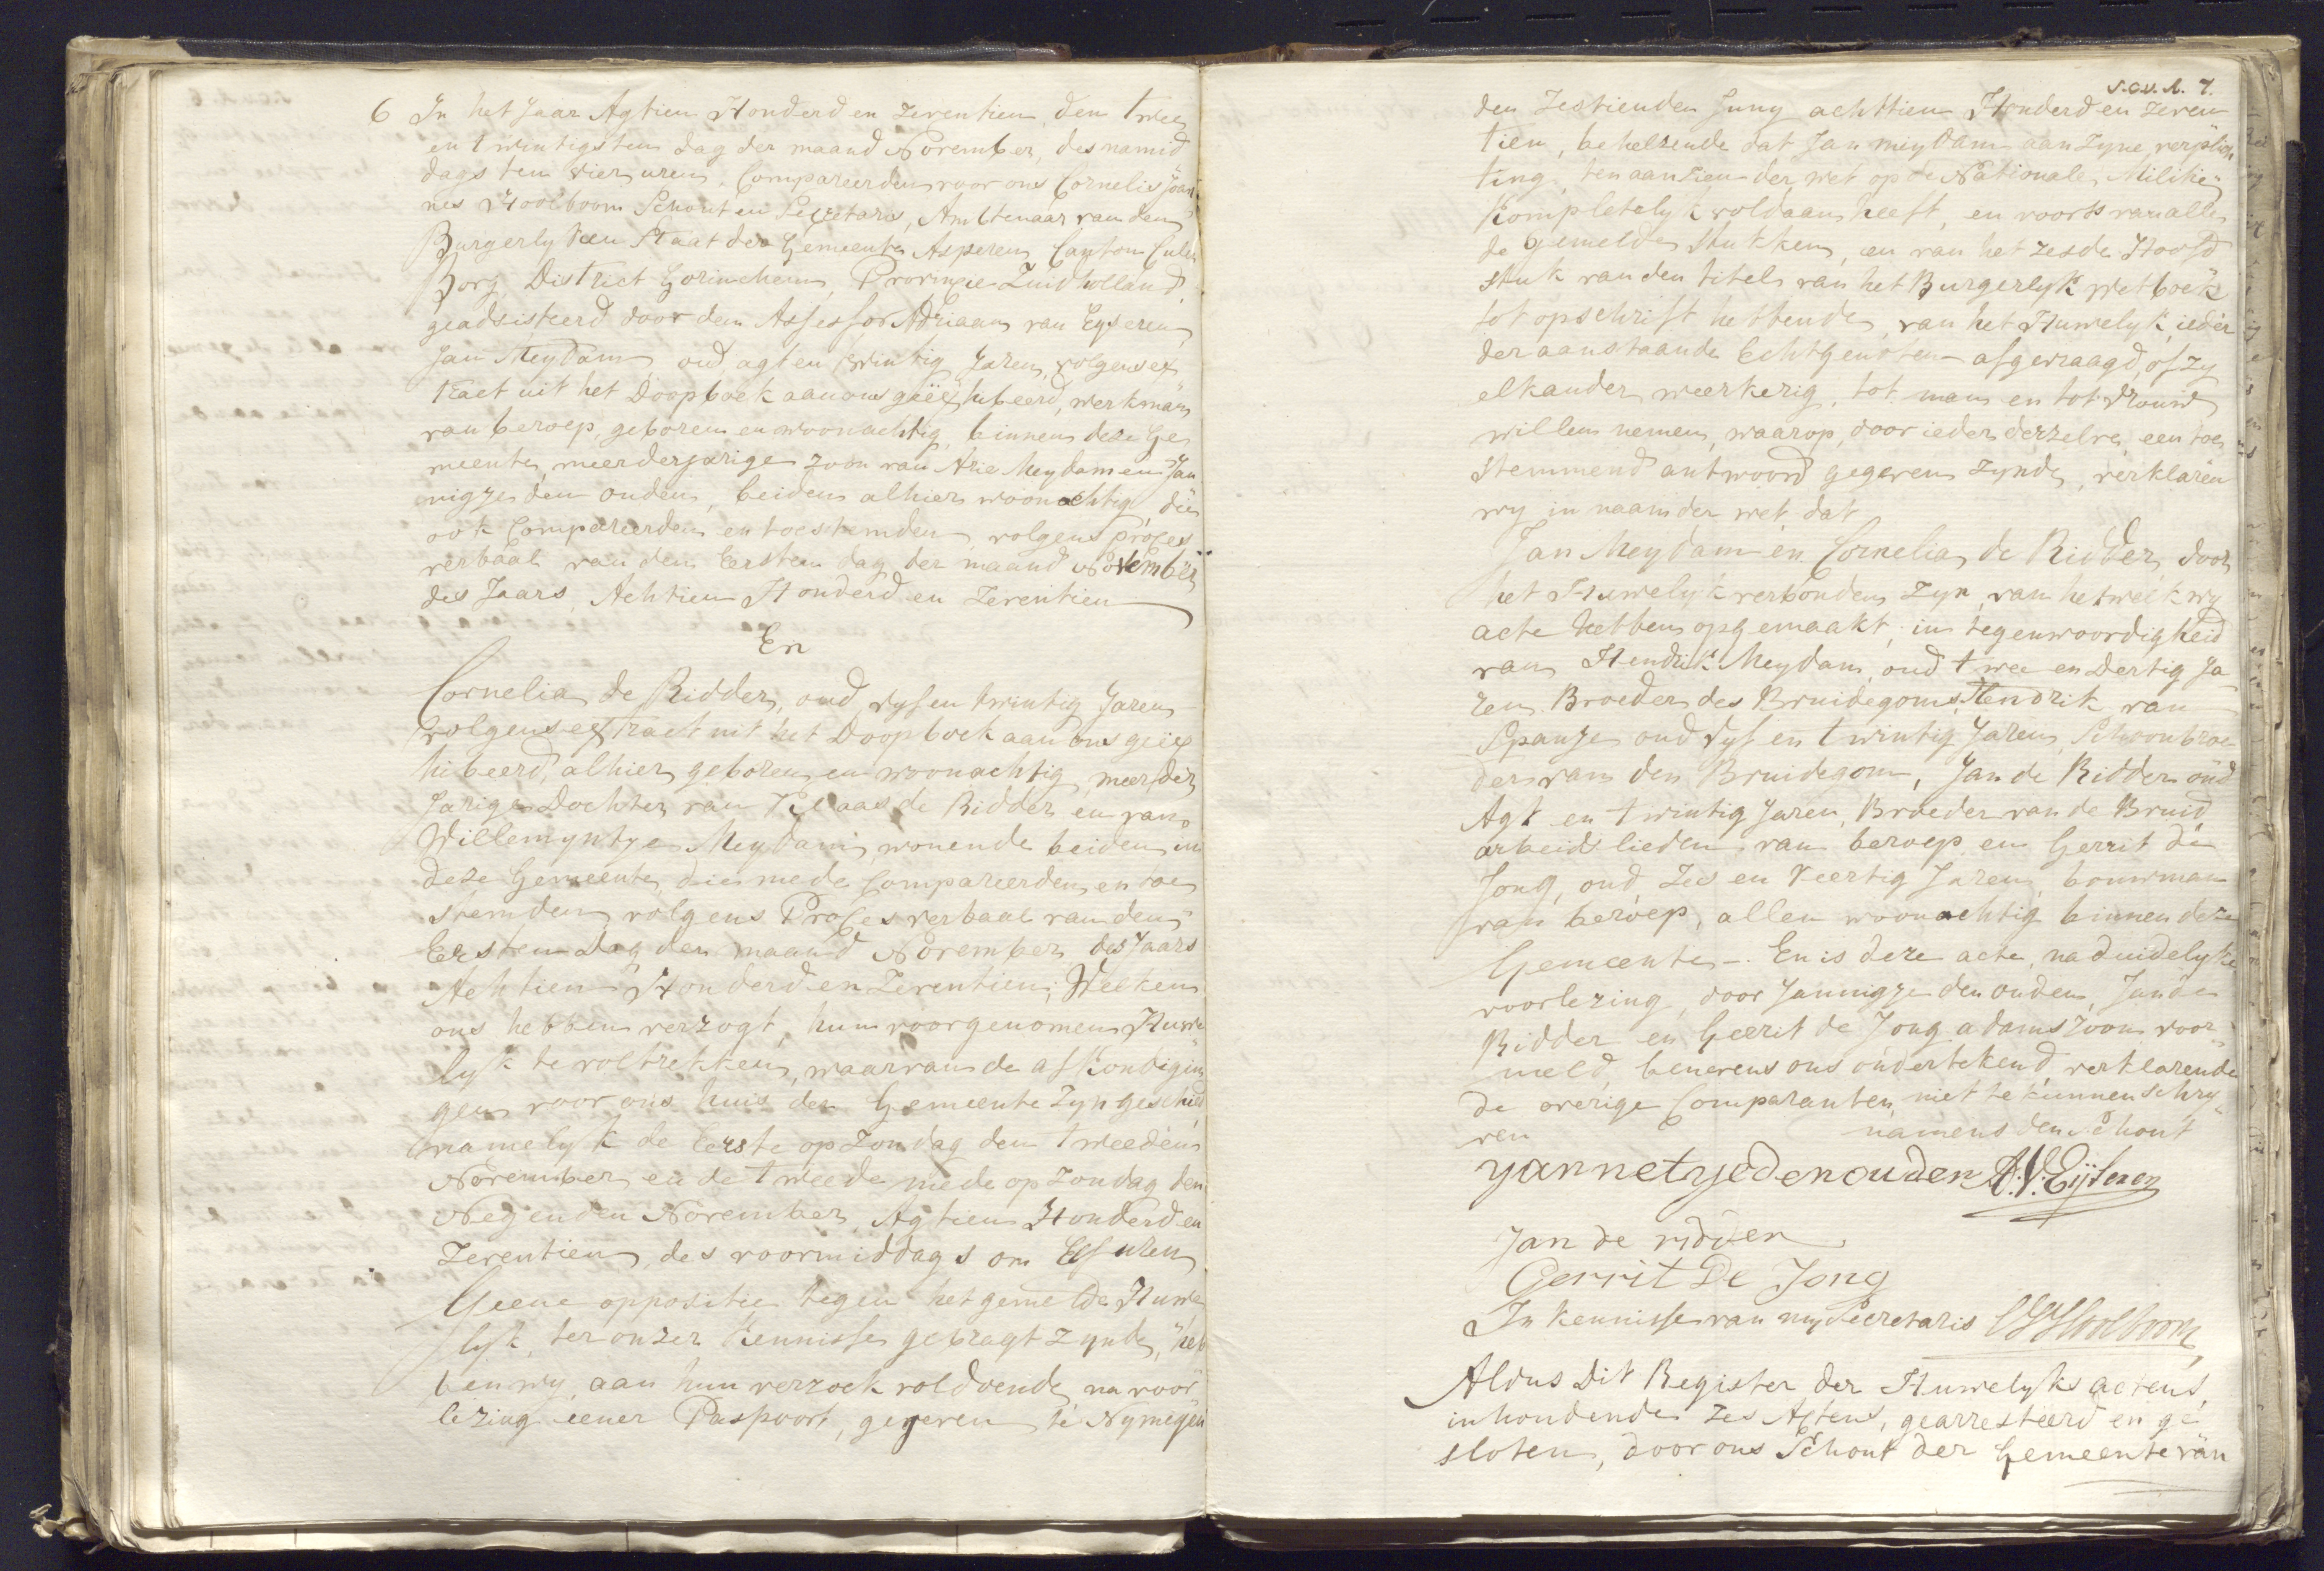 6 In het Jaar Agtien Honderd en Zeventien den twee
en twintigsten dag der maand November, des namid
dags ten vier uren, Compareerden voor ons Cornelis Joan
nes Hooiboom Schout en Secretaris, Ambtenaar van den
Burgerlyken Staat der Gemeente Asperen Canton Culen
borg District Gorinchem, Provincie Zuidholland,
geadsisteerd door den Assessor Adriaan van Eyseren
Jan Meydam oud agt en twintig Jaren, volgens ex
tract uit het Doopboek aan ons geëxhibeerd, werkman
van beroep, geboren en woonachtig, binnen deze Ge
meente, meerderjarige zoon van Arie Meydam en Jan
nigje den ouden, beiden alhier woonachtig die
ook Compareerden en toestemden volgens proces
verbaal van den Eersten dag der maand November
des Jaars Achtien Honderd en Zeventien
En
Cornelia de Ridder, oud vyf en twintig Jaren
volgens extract uit het Doopboek aan ons geëx
hibeerd, alhier geboren en woonachtig, meerder
Jarige Dochter van Klaas de Ridder en van
Willemyntje Meydam, wonende beiden in
deze Gemeente, die mede Compareerden en toe
stemden volgens Proces verbaal van den
Eersten Dag der maand November des Jaars
Achtien Honderd en Zeventien; Welken
ons hebben verzogt, hun voorgenomen Huwe
lyk te voltrekken, waarvan de afkondigin
gen voor ons huis der Gemeente zyn geschied
namelyk de Eerste op Zondag den tweeden
November en de tweede mede op Zondag den
Negenden November Agtien Honderd en
Zeventien, des voormiddags om Elf uren
Geene oppositie tegen het gemelde Huwe
lyk, ter onzer Kennisse gebragt zynde, heb
ben wy, aan hun verzoek voldoende, na voor
lezing eener Paspoort, gegeven te Nymegen
7.
den Zestienden Juny achttien Honderd en Zeven
tien, behelzende dat Jan Meydam aan Zyne verplich
ting, ten aanzien der wet op de Nationale Militie
Kompletelyk voldaan heeft, en voorts van alle
de gemelde stukken, en van het zesde Hoofd
stuk van den titel van het Burgerlyk wetboek
tot opschrift hebbende, van het Huwelyk, ieder
der aanstaande Echtgenoten afgevraagd, of zy
elkander weerkerig, tot man en tot vrouw
willen nemen, waarop, door ieder derzelve, een toe
stemmend antwoord gegeven zynde, verklaren
wy in naam der wet dat
Jan Meydam en Cornelia de Ridder, door
het Huwelyk verbonden zyn, van hetwelk wy
acte hebben opgemaakt, in tegenwoordigheid
van Hendrik Meydam, oud twee en dertig Ja
ren Broeder des Bruidegoms, Hendrik van
Spanje oud vyf en twintig Jaren, Schoonbroe
der van den Bruidegom, Jan de Ridder oud
Agt en twintig Jaren, Broeder van de Bruid,
arbeidslieden van beroep en Gerrit de
Jong, oud Zes en Veertig Jaren, bouwman
van beroep, allen woonachtig binnen deze
Gemeente -. En is deze acte, na duidelyke
voorlezing, door Jannigje den ouden, Jan de
Ridder en Gerrit de Jong adamszoon voor
meld, benevens ons ondertekend, verklarende
de overige Comparanten niet te kunnen schry
ven namens den Schout
yannetyedenouden A:V: Eijseren
Jan de ridder
Gerrit De Jong
In kennisse van my Secretaris CJHooiboom
Aldus Dit Register der Huwelyks actens,
inhoudende zes Actens, gearresteerd en ge
sloten, door ons Schout der Gemeente van